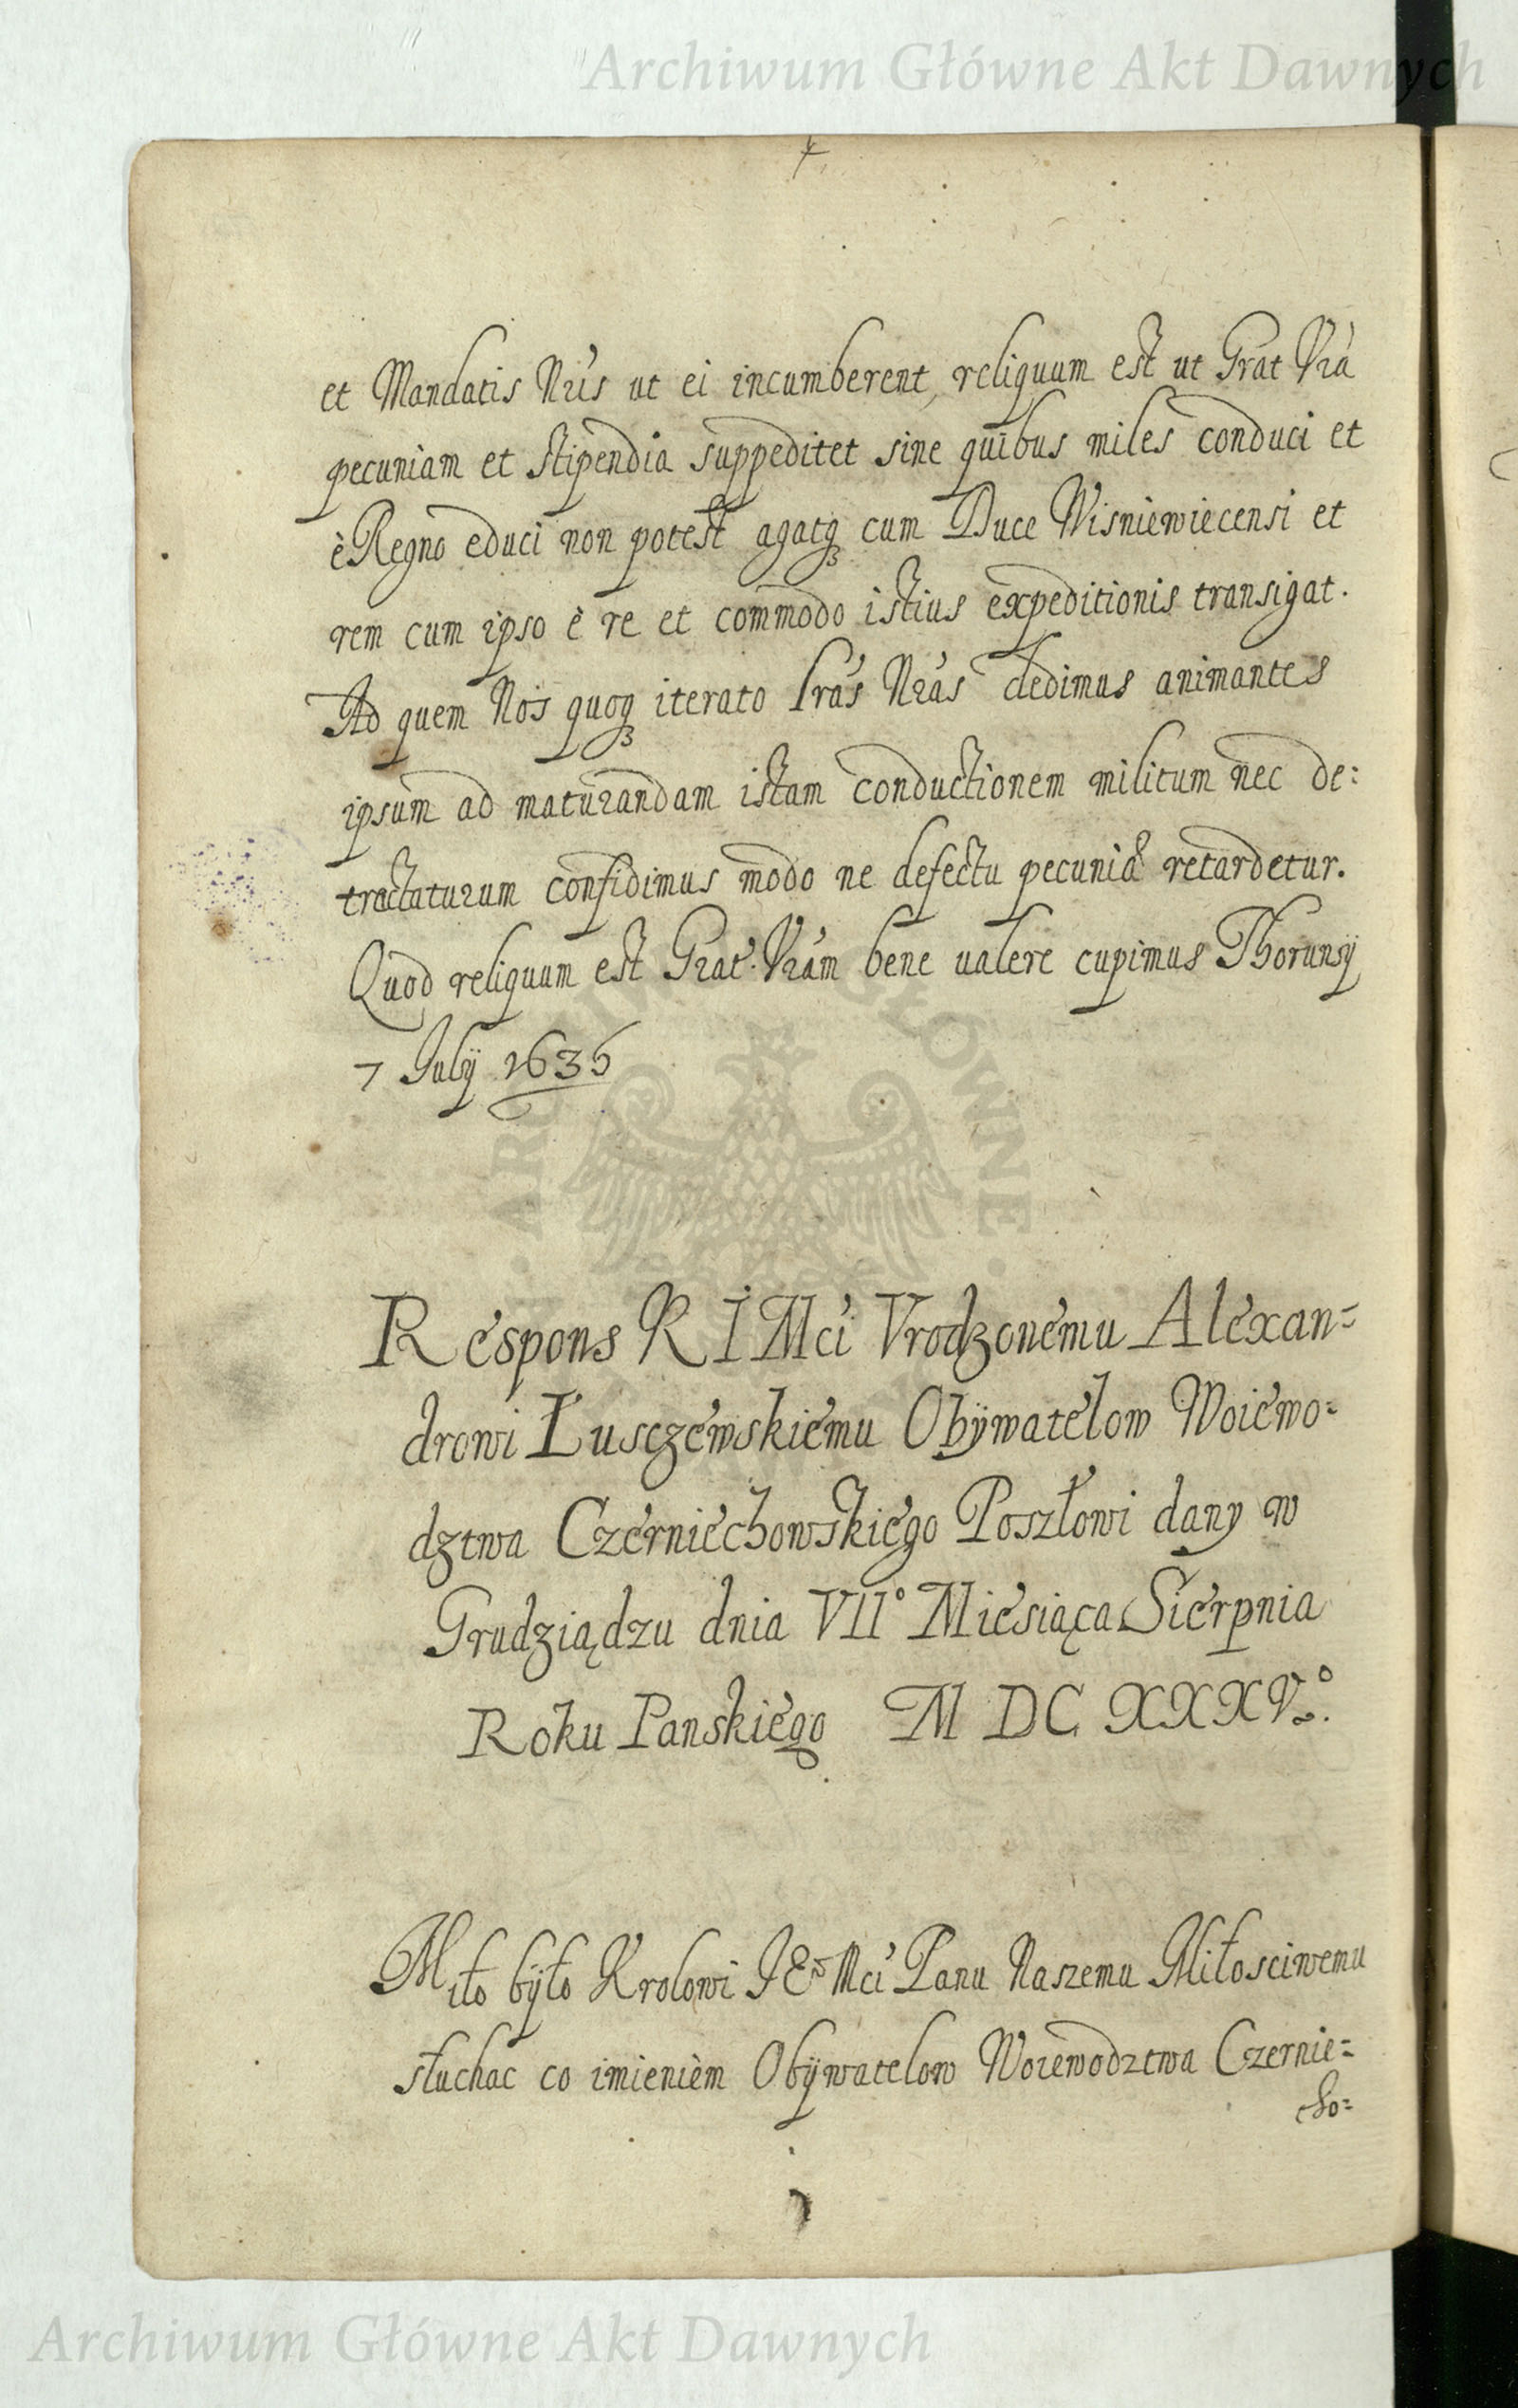 Archiwum Główne Akt Dawnych
et Mandatis Nris ut ei incumberent, reliquum est ut Grat Vrà
pecuniam et stipendia suppeditet sine quibus miles conduci et
è Regno educi non potest agatq3 cum Duce Wisniewiecensi et
rem cum ipso è re et commodo istius expeditionis transigat.
Ad quem Nos quoq3 iterato lrás Nrás dedimus animantes
ipsum ad maturandam istam conductionem militum nec de:
tractaturum confidimus modo ne defectu pecuniæ retardetur.
Quod reliquum est Grat. Vrám bene valere cupimus Thorunÿ
7 Julÿ 1635
Respons K I Mci Vrodzonemu Alexan=
drowi Łusczewskiemu Obÿwatelow Woiewo=
dztwa Czerniechowskiego Poszłowi dany w
Grudziądzu dnia VII° Miesiąca Sierpnia
Roku Panskiego M DC XXXV°.
Miło bÿło Krolowi JE° Mci Panu Naszemu Miłosciwemu
słuchac co imieniem Obÿwatelow Woiewodztwa Czernie=
cho=
Archiwum Główne Akt Dawnych